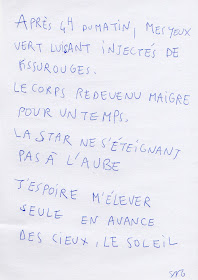 APRÈS 4H DU MATIN, MES YEUX
VERT LUISANT INJECTÉS DE
FISSUROUGES.
LE CORPS REDEVENU MAIGRE
POUR UN TEMPS,
LA STAR NE S'ÉTEIGNANT
PAS À L'AUBE
J'ESPOIRE M'ÉLEVER
SEULE EN AVANCE
DES CIEUX, LE SOLEIL